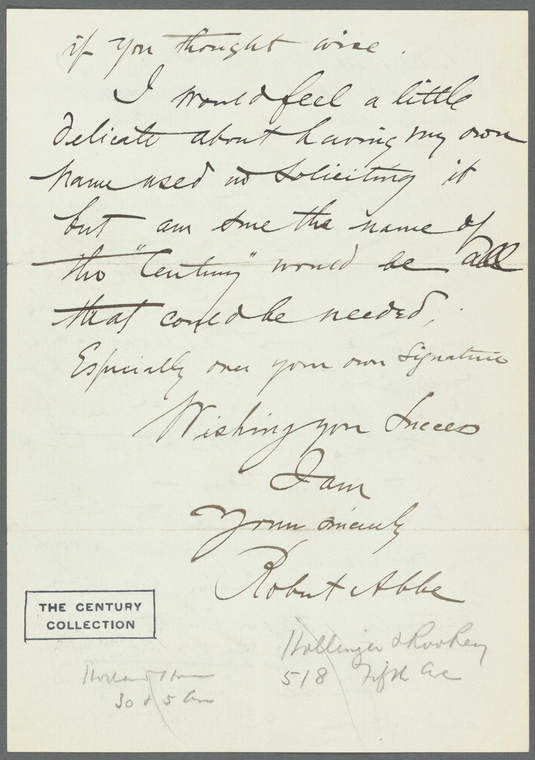 if you thought wise.
I would feel a little
delicate about having my own
name used in soliciting it
but am sure the name of
the "Century" would be all
that could be needed,
Especially over your own signature
Wishing you success
I am
Yours sincerely
Robert Abbe
THE CENTURY
COLLECTION
Hollinger & Rockey
518 Fifth Ave
Holland House
30 & 5 Ave